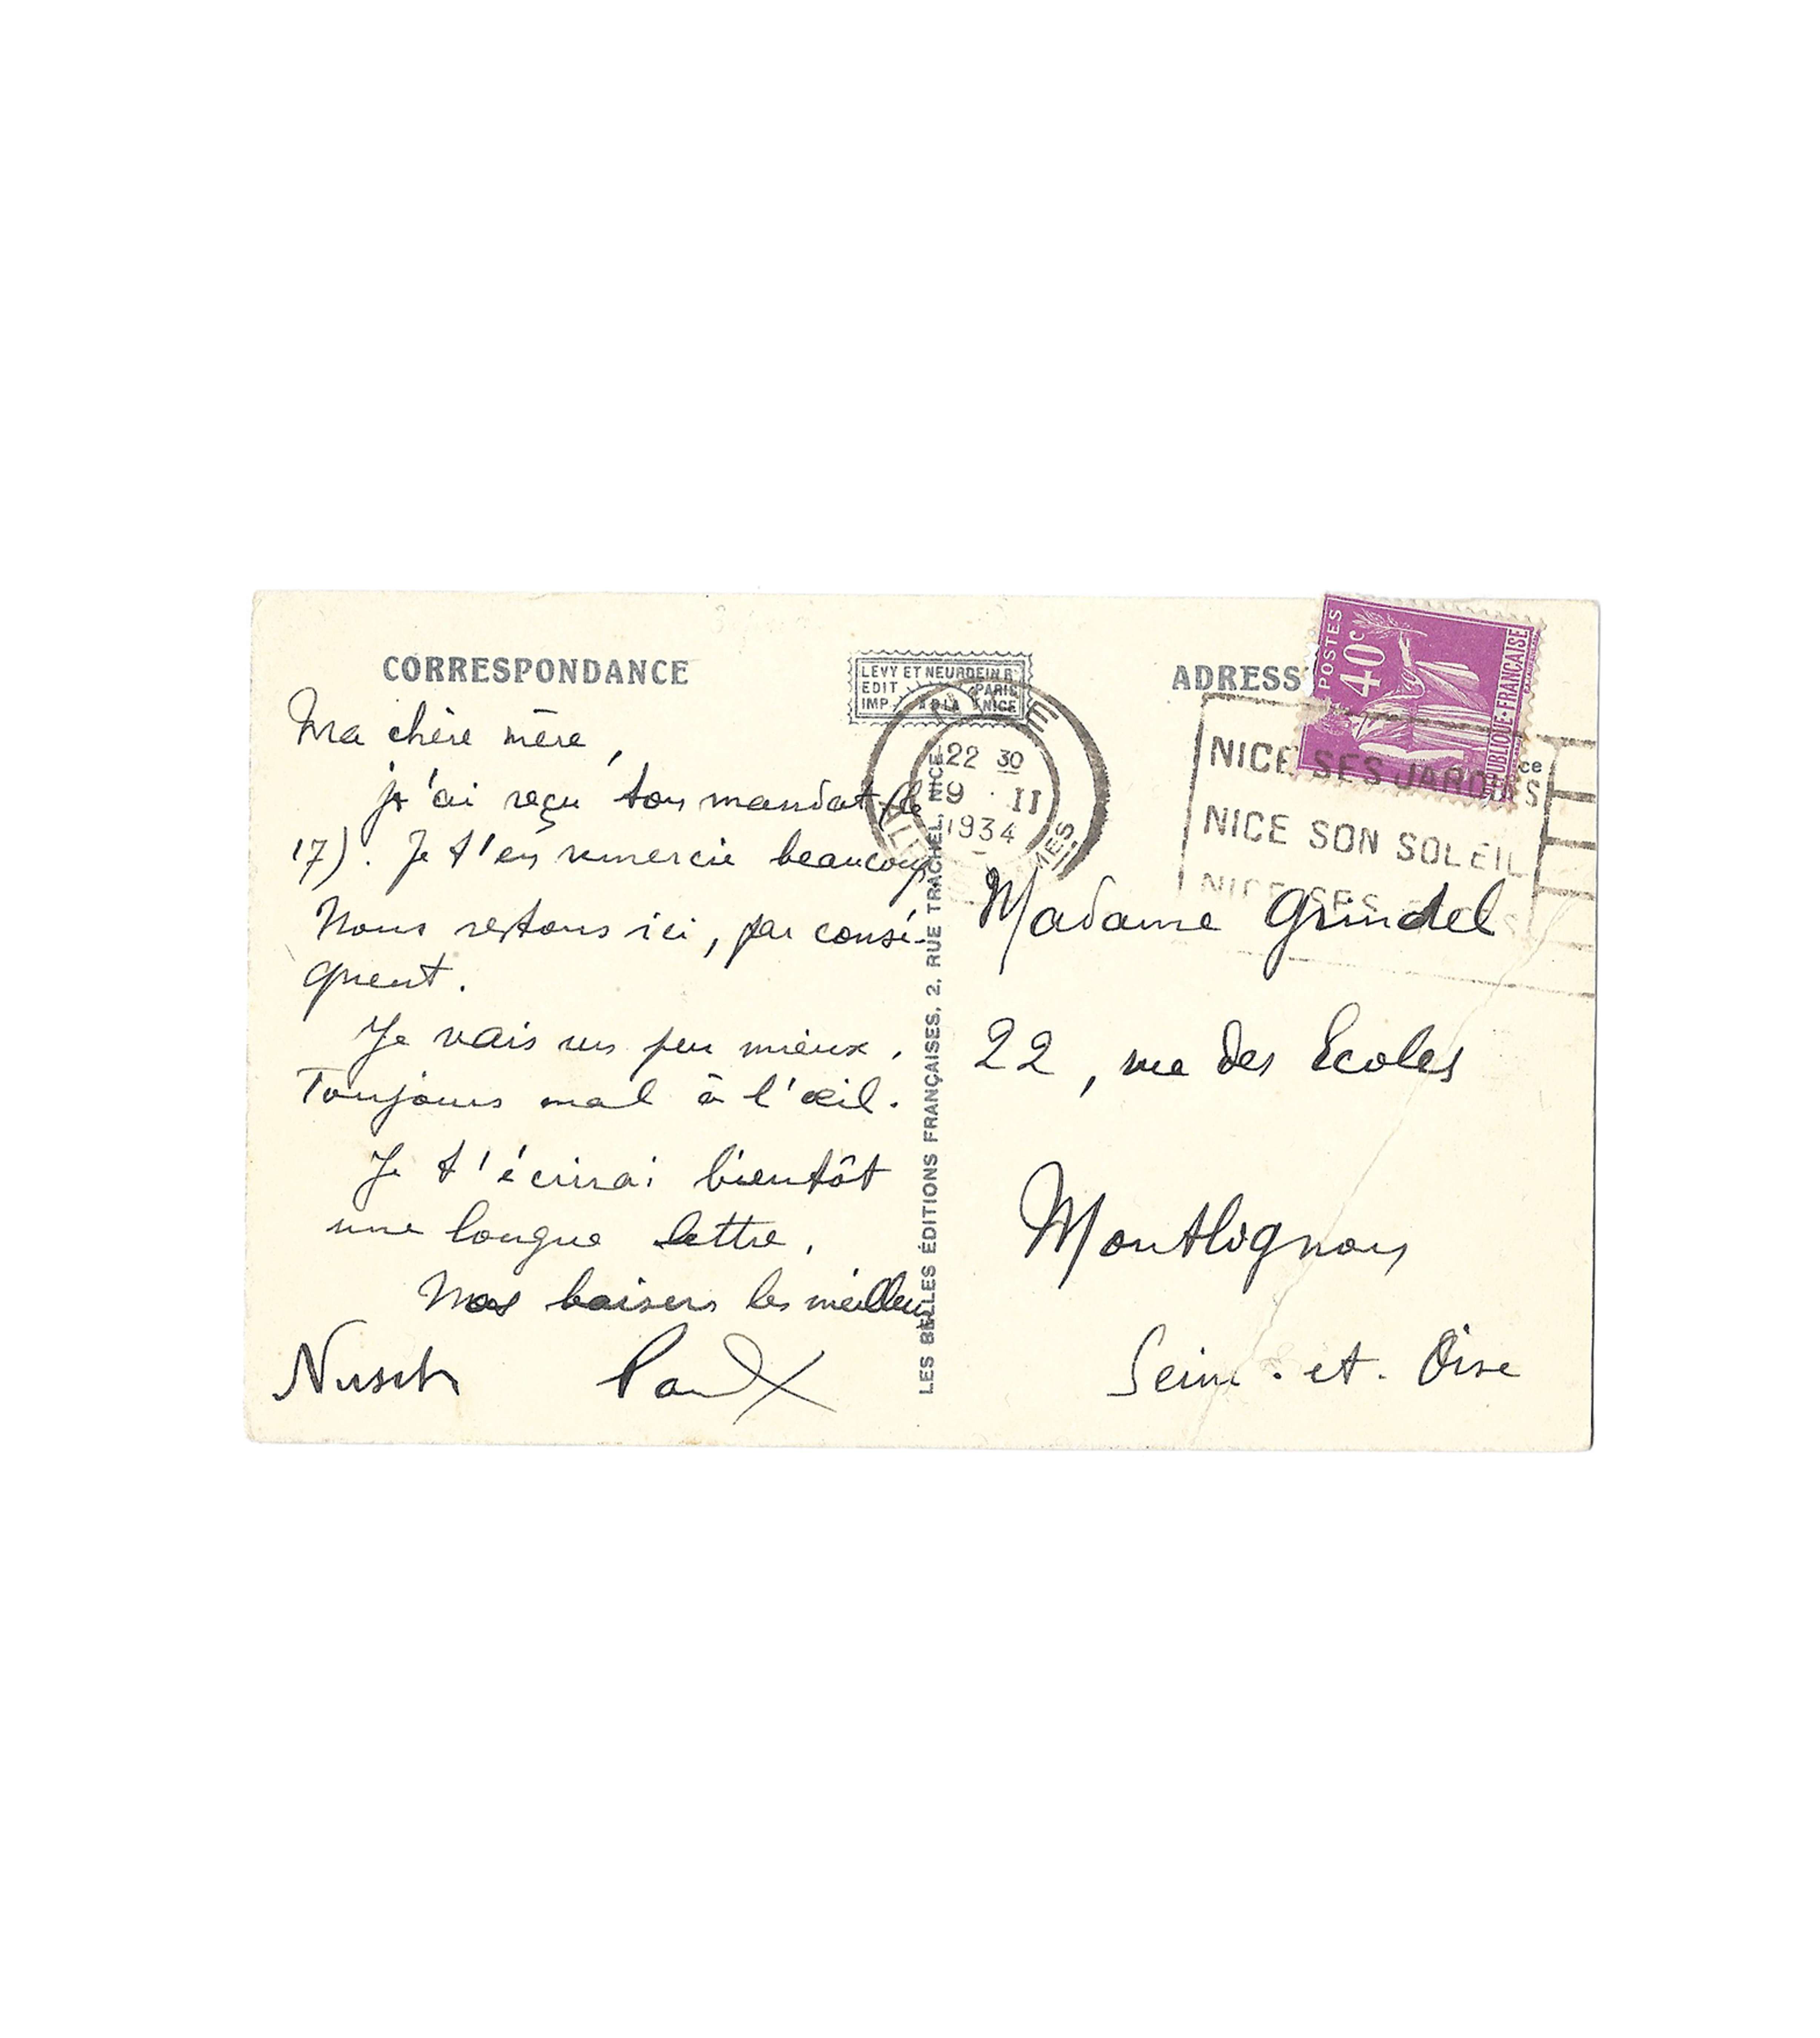 CORRESPONDANCE
Ma chère mère,
j'ai reçu ton mandat (le
17). Je t'en remercie beaucoup
Nous restons ici, par consé-
quent.
Je vais un peu mieux.
Toujours mal à l'œil.
Je t'écrirai bientôt
une longue lettre.
Nos baisers les meilleurs
Nusch Paul
LEVY ET NEURDEIN R
EDIT PARIS
IMP. NICE
22 30
9 II
1934
LES BELLES ÉDITIONS FRANÇAISES, 2, RUE TRACHEL, NICE
ADRESS
POSTES
40c
RÉPUBLIQUE·FRANÇAISE
NICE SES JARDINS
NICE SON SOLEIL
NICE SES
Madame Grindel
22, rue des Ecoles
Montlignon
Seine-et-Oise